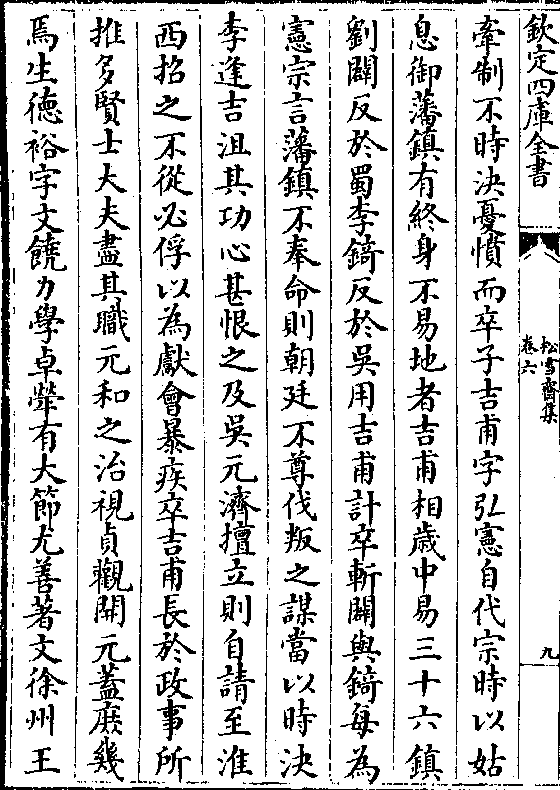 欽定四庫全書
松雪齋集
卷六
九
牽制不時決憂憤而卒子吉甫字弘憲自代宗時以姑
息御藩鎮有終身不易地者吉甫相歲中易三十六鎮
劉闢反於蜀李錡反於吳用吉甫計卒斬闢與錡每為
憲宗言藩鎮不奉命則朝廷不尊伐叛之謀當以時決
李逢吉沮其功心甚恨之及吳元濟擅立則自請至淮
西招之不從必俘以為獻會暴疾卒吉甫長於政事所
推多賢士大夫盡其職元和之治視貞觀開元蓋庶幾
焉生德裕字文饒力學卓犖有大節尤善著文徐州王